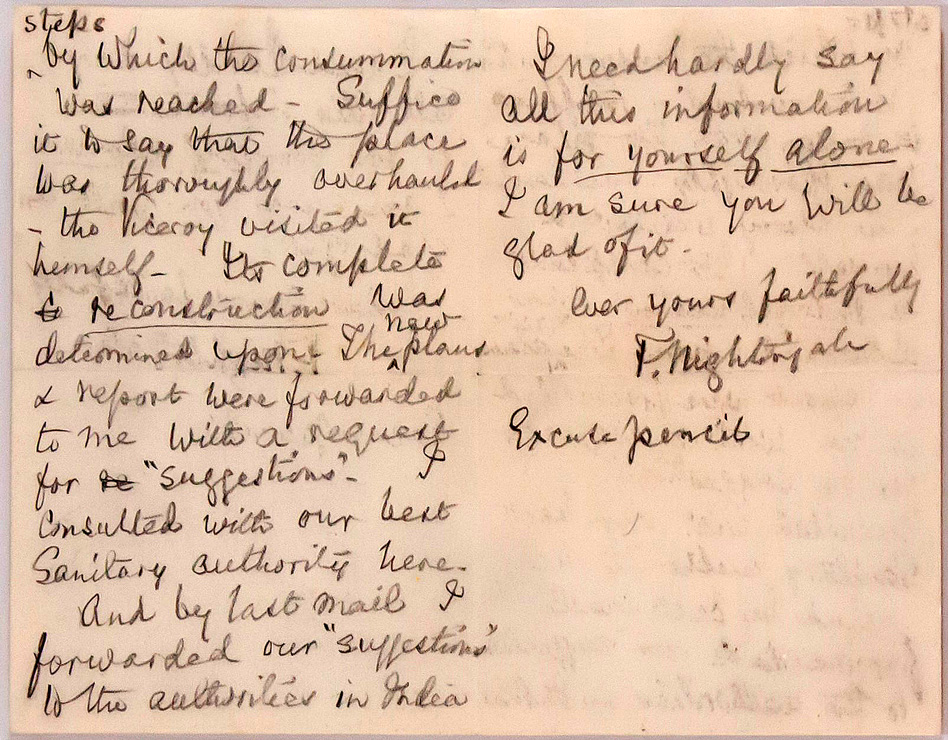 steps
by which the consummation
was reached - Suffice
it to say that the place
was thoroughly overhauled
- the Viceroy visited it
himself - Its complete
to reconstruction was
new
determined upon - The plans
& report were forwarded
to me with a request
for re "suggestions" - I
consulted with our best
Sanitary authority here.
And by last mail I
forwarded our "suggestions"
to the authorities in India
I need hardly say
all this information
is for yourself alone
I am sure you will be
glad of it -
ever yours faithfully
F. Nightingale
Excuse pencil